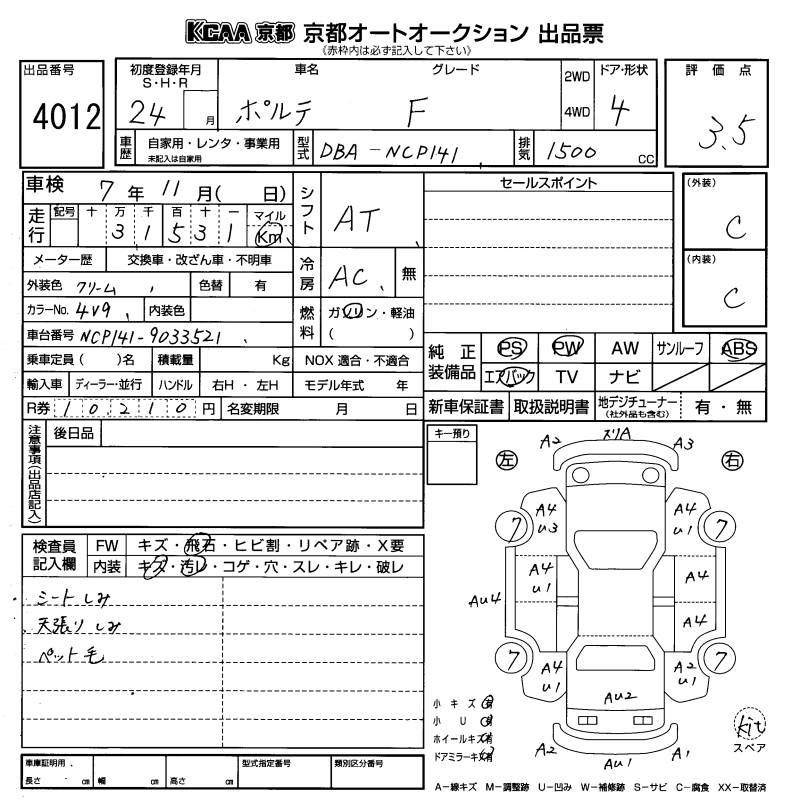 KCAA 京都 京都オートオークション 出品票
《赤枠内は必ず記入して下さい》
出品番号 4012
初度登録年月 S・H・R 24 月
車名 ポルテ
グレード F
2WD 4WD
ドア・形状 4
評価点 3.5
車歴 自家用・レンタ・事業用 未記入は自家用
型式 DBA-NCP141
排気 1500 CC
車検 7年 11月( 日)
シフト AT
セールスポイント
(外装) C
走行 記号 十 万 千 百 十 一 マイル
3 1 5 3 1 Km
メーター歴 交換車・改ざん車・不明車
冷房 AC 無
(内装) C
外装色 クリーム 色替 有
カラーNo. 4V9 内装色
燃料 ガソリン・軽油 ( )
車台番号 NCP141-9033521
純正装備品 PS PW AW サンルーフ ABS
エアバック TV ナビ
乗車定員( )名 積載量 Kg NOX 適合・不適合
輸入車 ディーラー・並行 ハンドル 右H・左H モデル年式 年
R券 10210円 名変期限 月 日
新車保証書 取扱説明書 地デジチューナー (社外品も含む) 有・無
注意事項(出品店記入) 後日品
キー預り
左 右
A2 スリA A3
検査員記入欄 FW キズ・飛石・ヒビ割・リペア跡・X要
内装 キズ・汚レ・コゲ・穴・スレ・キレ・破レ
シートしみ
天張りしみ
ペット毛
7 A4 U3 A4 U1 7
A4 U1 A4
AU4 A4
7 A4 U1 A2 U1 7
AU2
小キズ 有
小U 有
ホイールキズ 有
ドアミラーキズ 有
A2 AU1 A1
kit スペア
車庫証明用 長さ cm 幅 cm 高さ cm 型式指定番号 類別区分番号
A−線キズ M−調整跡 U−凹み W−補修跡 S−サビ C−腐食 XX−取替済